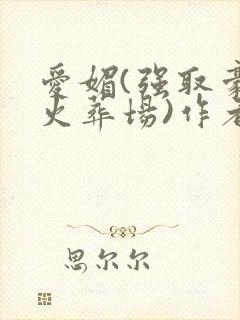 爱媚(强取豪
火葬场)作者
思尔尔